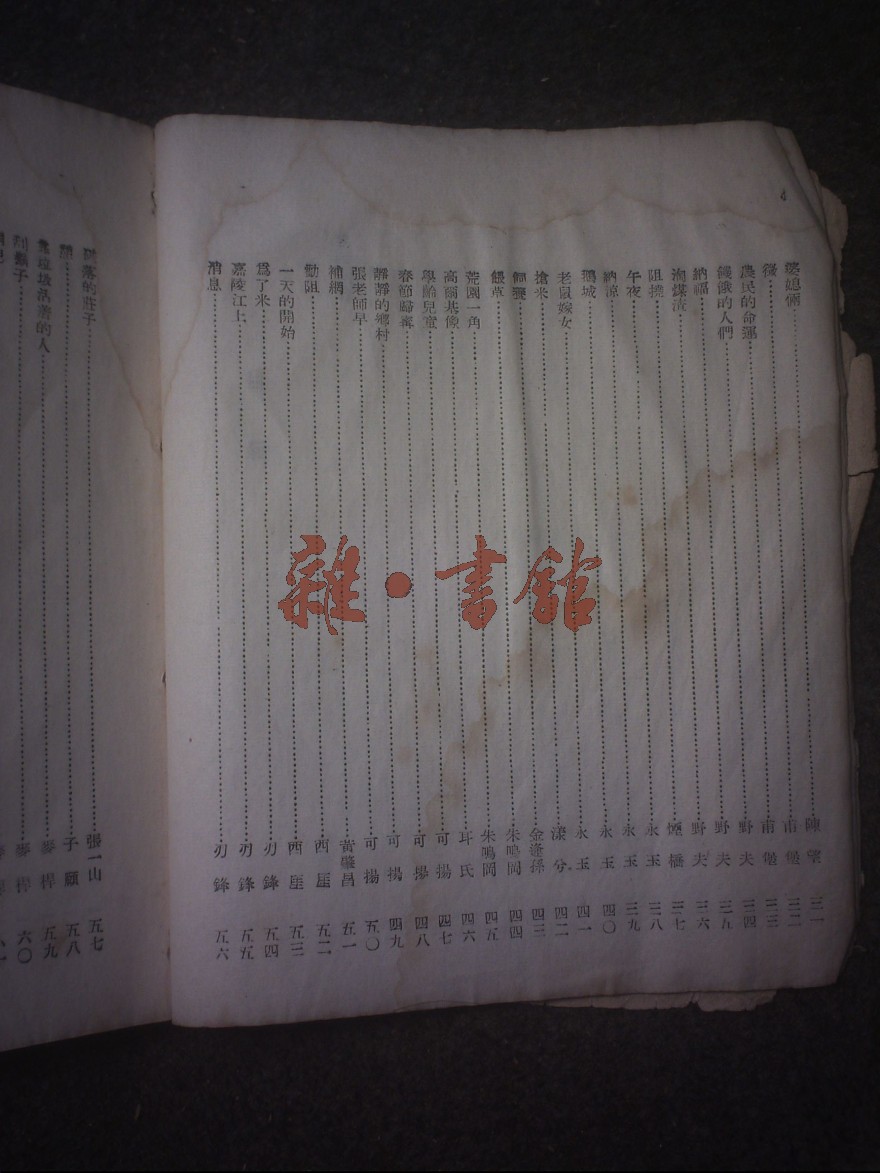 4
婆媳倆 陳望 三一
甫堡 三二
農民的命運 甫堡 三三
饑餓的人們 野夫 三四
納福 野夫 三五
淘煤渣 野夫 三六
阻撓 煙橋 三七
午夜 永玉 三八
納涼 永玉 三九
鵝城 永玉 四〇
老鼠嫁女 永玉 四一
搶米 漾兮 四二
金逢孫 四三
餵草 朱鳴岡 四四
荒園一角 朱鳴岡 四五
高爾基像 耳氏 四六
學齡兒童 可揚 四七
春節歸 可揚 四八
靜靜的鄉村 可揚 四九
張老師早 可揚 五〇
補網 黃肇昌 五一
勸阻 西厓 五二
一天的開始 西厓 五三
爲了米 刃鋒 五四
嘉陵江上 刃鋒 五五
消息 刃鋒 五六
破落的莊子 張一山 五七
子顧 五八
靠垃圾活着的人 麥桿 五九
麥桿 六〇
雜·書館